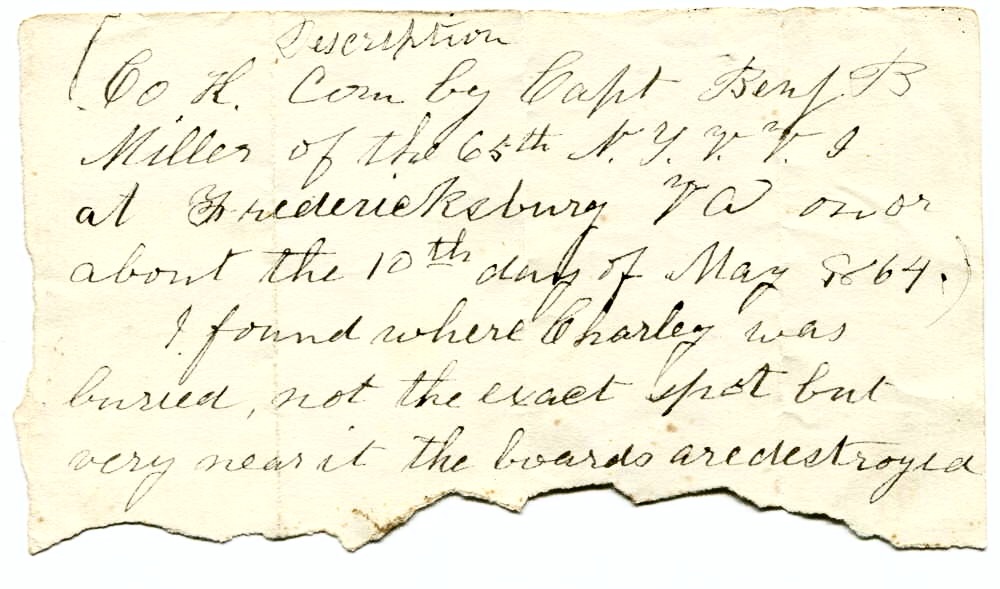 Description
(Co H. Com by Capt Benj B
Miller of the 65th N. Y. V. V. I
at Fredericksburg VA on or
about the 10th day of May 1864.)
I found where Charley was
buried, not the exact spot but
very near it the boards are destroyed